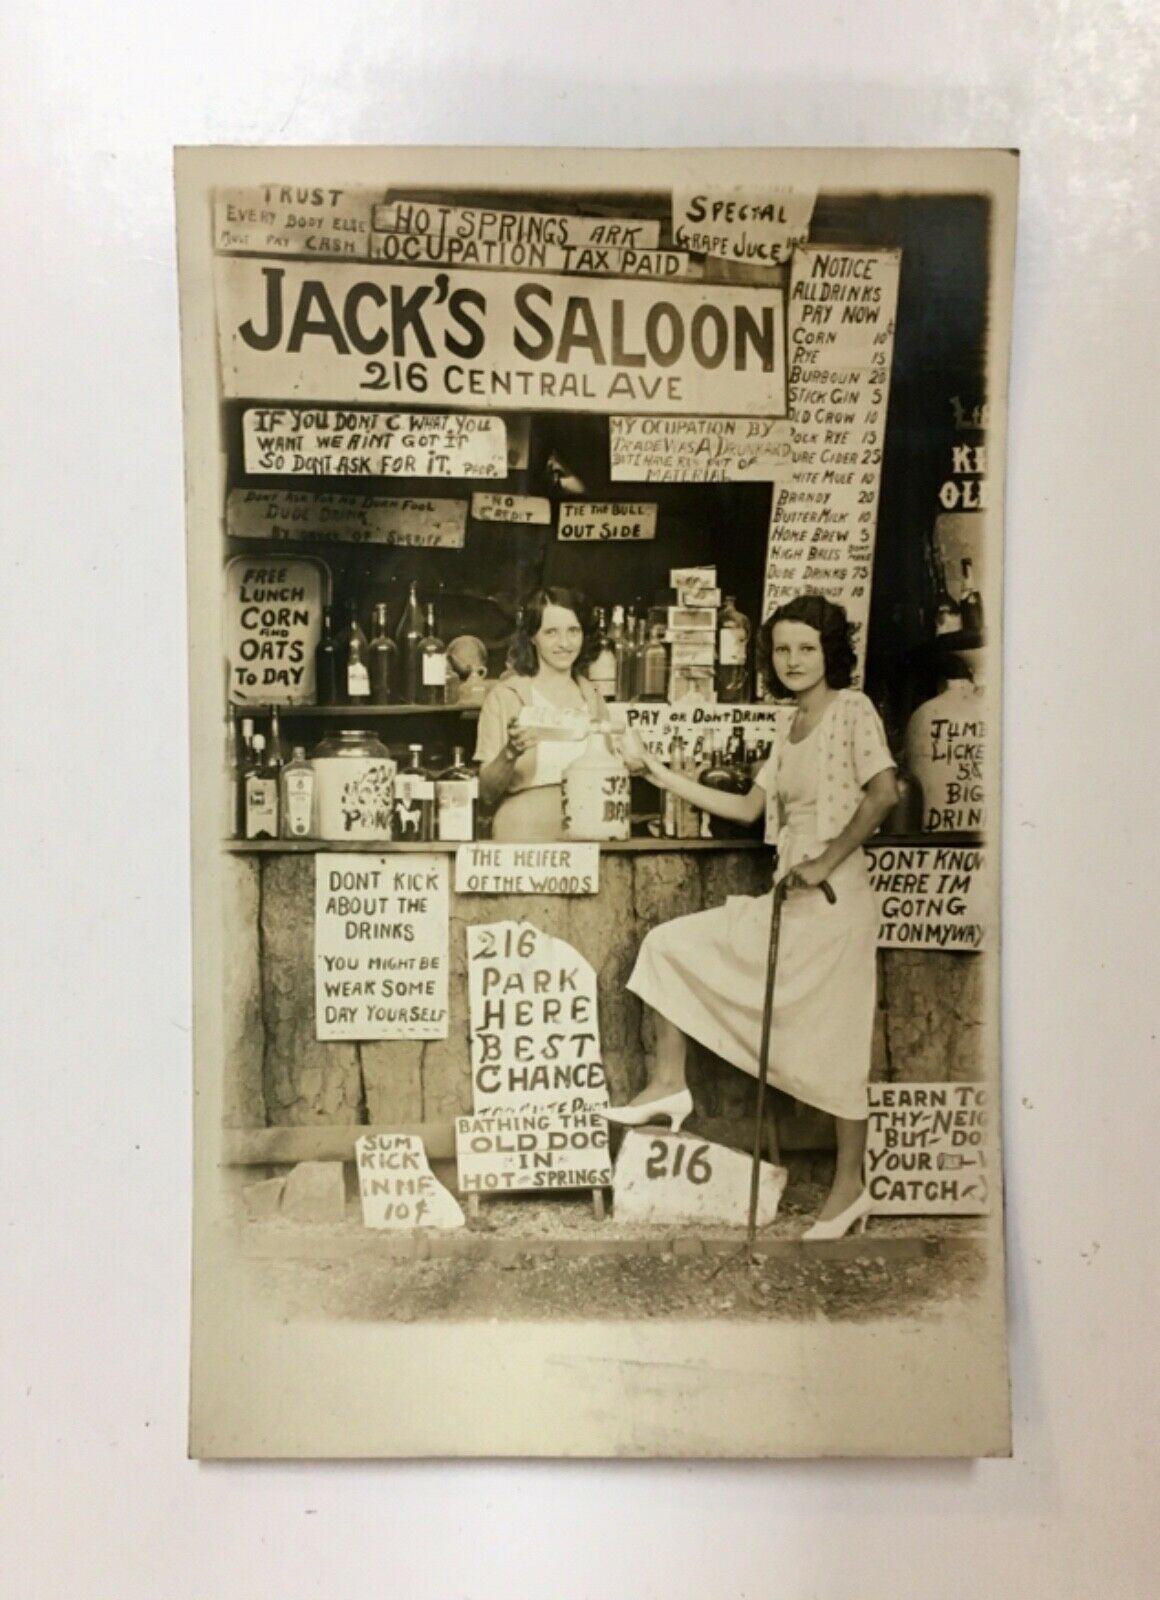 TRUST
EVERY BODY ELSE
MUST PAY CASH
HOT SPRINGS ARK
OCUPATION TAX PAID
SPECIAL
GRAPE JUCE
JACK'S SALOON
216 CENTRAL AVE
NOTICE
ALL DRINKS
PAY NOW
CORN 10¢
RYE 15
BURBOUN 20
STICK GIN 5
OLD CROW 10
ROCK RYE 15
URE CIDER 25
HITE MULE 10
BRANDY 20
BUTTER MILK 10
HOME BREW 5
HIGH BALLS DONT MAKE
DUDE DRINKS 75
PEACH BRANDY 10
IF YOU DONT C WHAT YOU
WANT WE AINT GOT IT
SO DONT ASK FOR IT. PROP.
MY OCUPATION BY
TRADE WAS A DRUNKARD
BUT I HAVE RUN OUT OF
MATERIAL
DONT ASK FOR NO DURN FOOL
DUDE DRINK
BY ORDER OF SHERIFF
NO
CREDIT
TIE THE BULL
OUT SIDE
KE
OLD
FREE
LUNCH
CORN
AND
OATS
TO DAY
PAY OR DONT DRINK
BY
JUMB
LICKE
5¢
BIG
DRIN
THE HEIFER
OF THE WOODS
DONT KICK
ABOUT THE
DRINKS
YOU MIGHT BE
WEAK SOME
DAY YOURSELF
DONT KNOW
HERE IM
GOTNG
UT ON MY WAY
216
PARK
HERE
BEST
CHANCE
BATHING THE
OLD DOG
-IN-
HOT-SPRINGS
SUM
KICK
IN ME
10¢
216
LEARN TO
THY-NEIG
BUT-DO
YOUR
CATCH